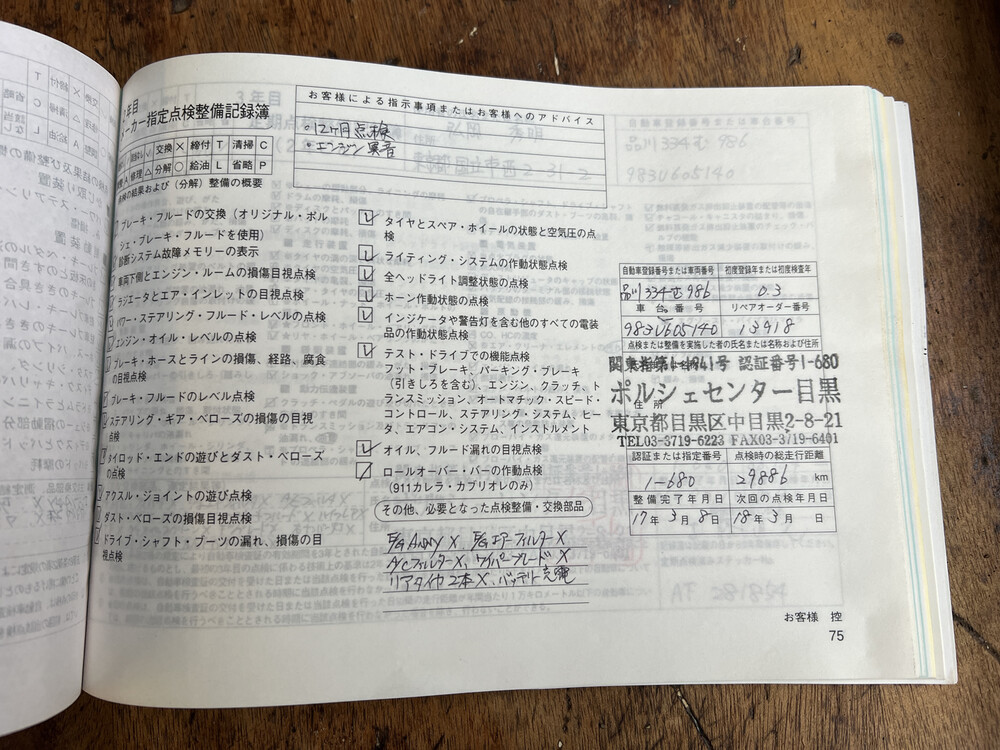 年目
メーカー指定点検整備記録簿
交換 × 締付 T 清掃 C
修理 △ 分解 ○ 給油 L 省略 P
点検の結果および(分解)整備の概要
お客様による指示事項またはお客様へのアドバイス
・12ヶ月点検
・エンジン異音
ブレーキ・フルードの交換(オリジナル・ポル
シェ・ブレーキ・フルードを使用)
診断システム故障メモリーの表示
車両下側とエンジン・ルームの損傷目視点検
ラジエータとエア・インレットの目視点検
パワー・ステアリング・フルード・レベルの点検
エンジン・オイル・レベルの点検
ブレーキ・ホースとラインの損傷、経路、腐食
の目視点検
ブレーキ・フルードのレベル点検
ステアリング・ギア・ベローズの損傷の目視
点検
タイロッド・エンドの遊びとダスト・ベローズ
の点検
アクスル・ジョイントの遊び点検
ダスト・ベローズの損傷目視点検
ドライブ・シャフト・ブーツの漏れ、損傷の目
視点検
タイヤとスペア・ホイールの状態と空気圧の点
検
ライティング・システムの作動状態点検
全ヘッドライト調整状態の点検
ホーン作動状態の点検
インジケータや警告灯を含む他のすべての電装
品の作動状態点検
テスト・ドライブでの機能点検
フット・ブレーキ、パーキング・ブレーキ
(引きしろを含む)、エンジン、クラッチ、ト
ランスミッション、オートマチック・スピード・
コントロール、ステアリング・システム、ヒー
タ、エアコン・システム、インストルメント
オイル、フルード漏れの目視点検
ロールオーバー・バーの作動点検
(911カレラ・カブリオレのみ)
その他、必要となった点検整備・交換部品
E/G ×、E/Gエアーフィルター×
A/Cフィルター×、ワイパーブレード×
リアタイヤ2本×、バッテリー充電
自動車登録番号または車両番号 初度登録年または初度検査年
品川 334 む 986 0.3
車台番号 リペアオーダー番号
983U605140 13918
点検または整備を実施した者の氏名または名称および住所
認証番号1-680
ポルシェセンター目黒
住所
東京都目黒区中目黒2-8-21
TEL03-3719-6223 FAX03-3719-6401
認証または指定番号 点検時の総走行距離
1-680 29886 km
整備完了年月日 次回の点検年月日
17年 3月 8日 18年 3月 日
お客様 控
75